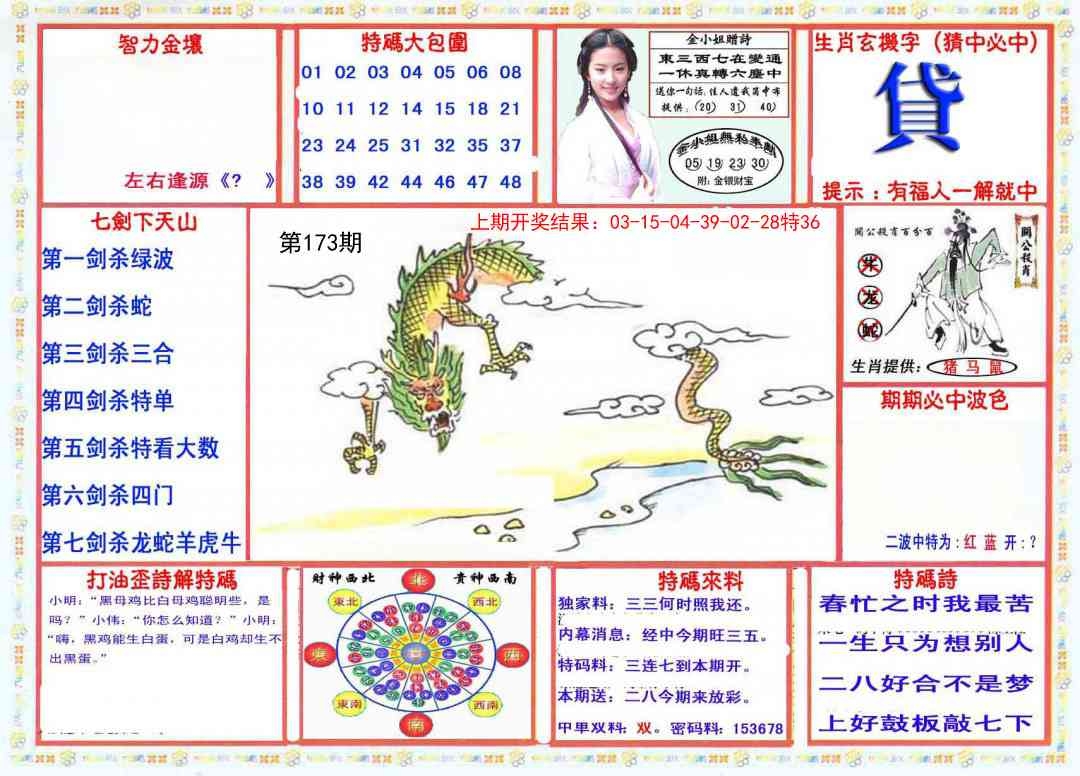 智力金壤
左右逢源《？ 》
特碼大包圍
01 02 03 04 05 06 08
10 11 12 14 15 18 21
23 24 25 31 32 35 37
38 39 42 44 46 47 48
金小姐贈詩
東三西七在變通
一休真轉六塵中
送你一句話，佳人遺我萬中布
提供：(20) 31) 40)
金小姐無私奉獻
05 19 23 30
附：金银财宝
生肖玄機字（猜中必中）
貸
提示：有福人一解就中
七劍下天山
第一剑杀绿波
第二剑杀蛇
第三剑杀三合
第四剑杀特单
第五剑杀特看大数
第六剑杀四门
第七剑杀龙蛇羊虎牛
上期开奖结果：03-15-04-39-02-28特36
第173期
關公殺肖百分百
關公殺肖
龙
蛇
生肖提供：猪 马 鼠
期期必中波色
二波中特为：红 蓝 开：？
打油歪詩解特碼
小明：“黑母鸡比白母鸡聪明些，是
吗？”小伟：“你怎么知道？”小明：
“嗨，黑鸡能生白蛋，可是白鸡却生不
出黑蛋。”
财神西北 貴神西南
北
東北 西北
東 西
東南 西南
南
特碼來料
独家料：三三何时照我还。
内幕消息：经中今期旺三五。
特码料：三连七到本期开。
本期送：二八今期来放彩。
中单双料：双。密码料：153678
特碼詩
春忙之时我最苦
一生只为想别人
二八好合不是梦
上好鼓板敲七下